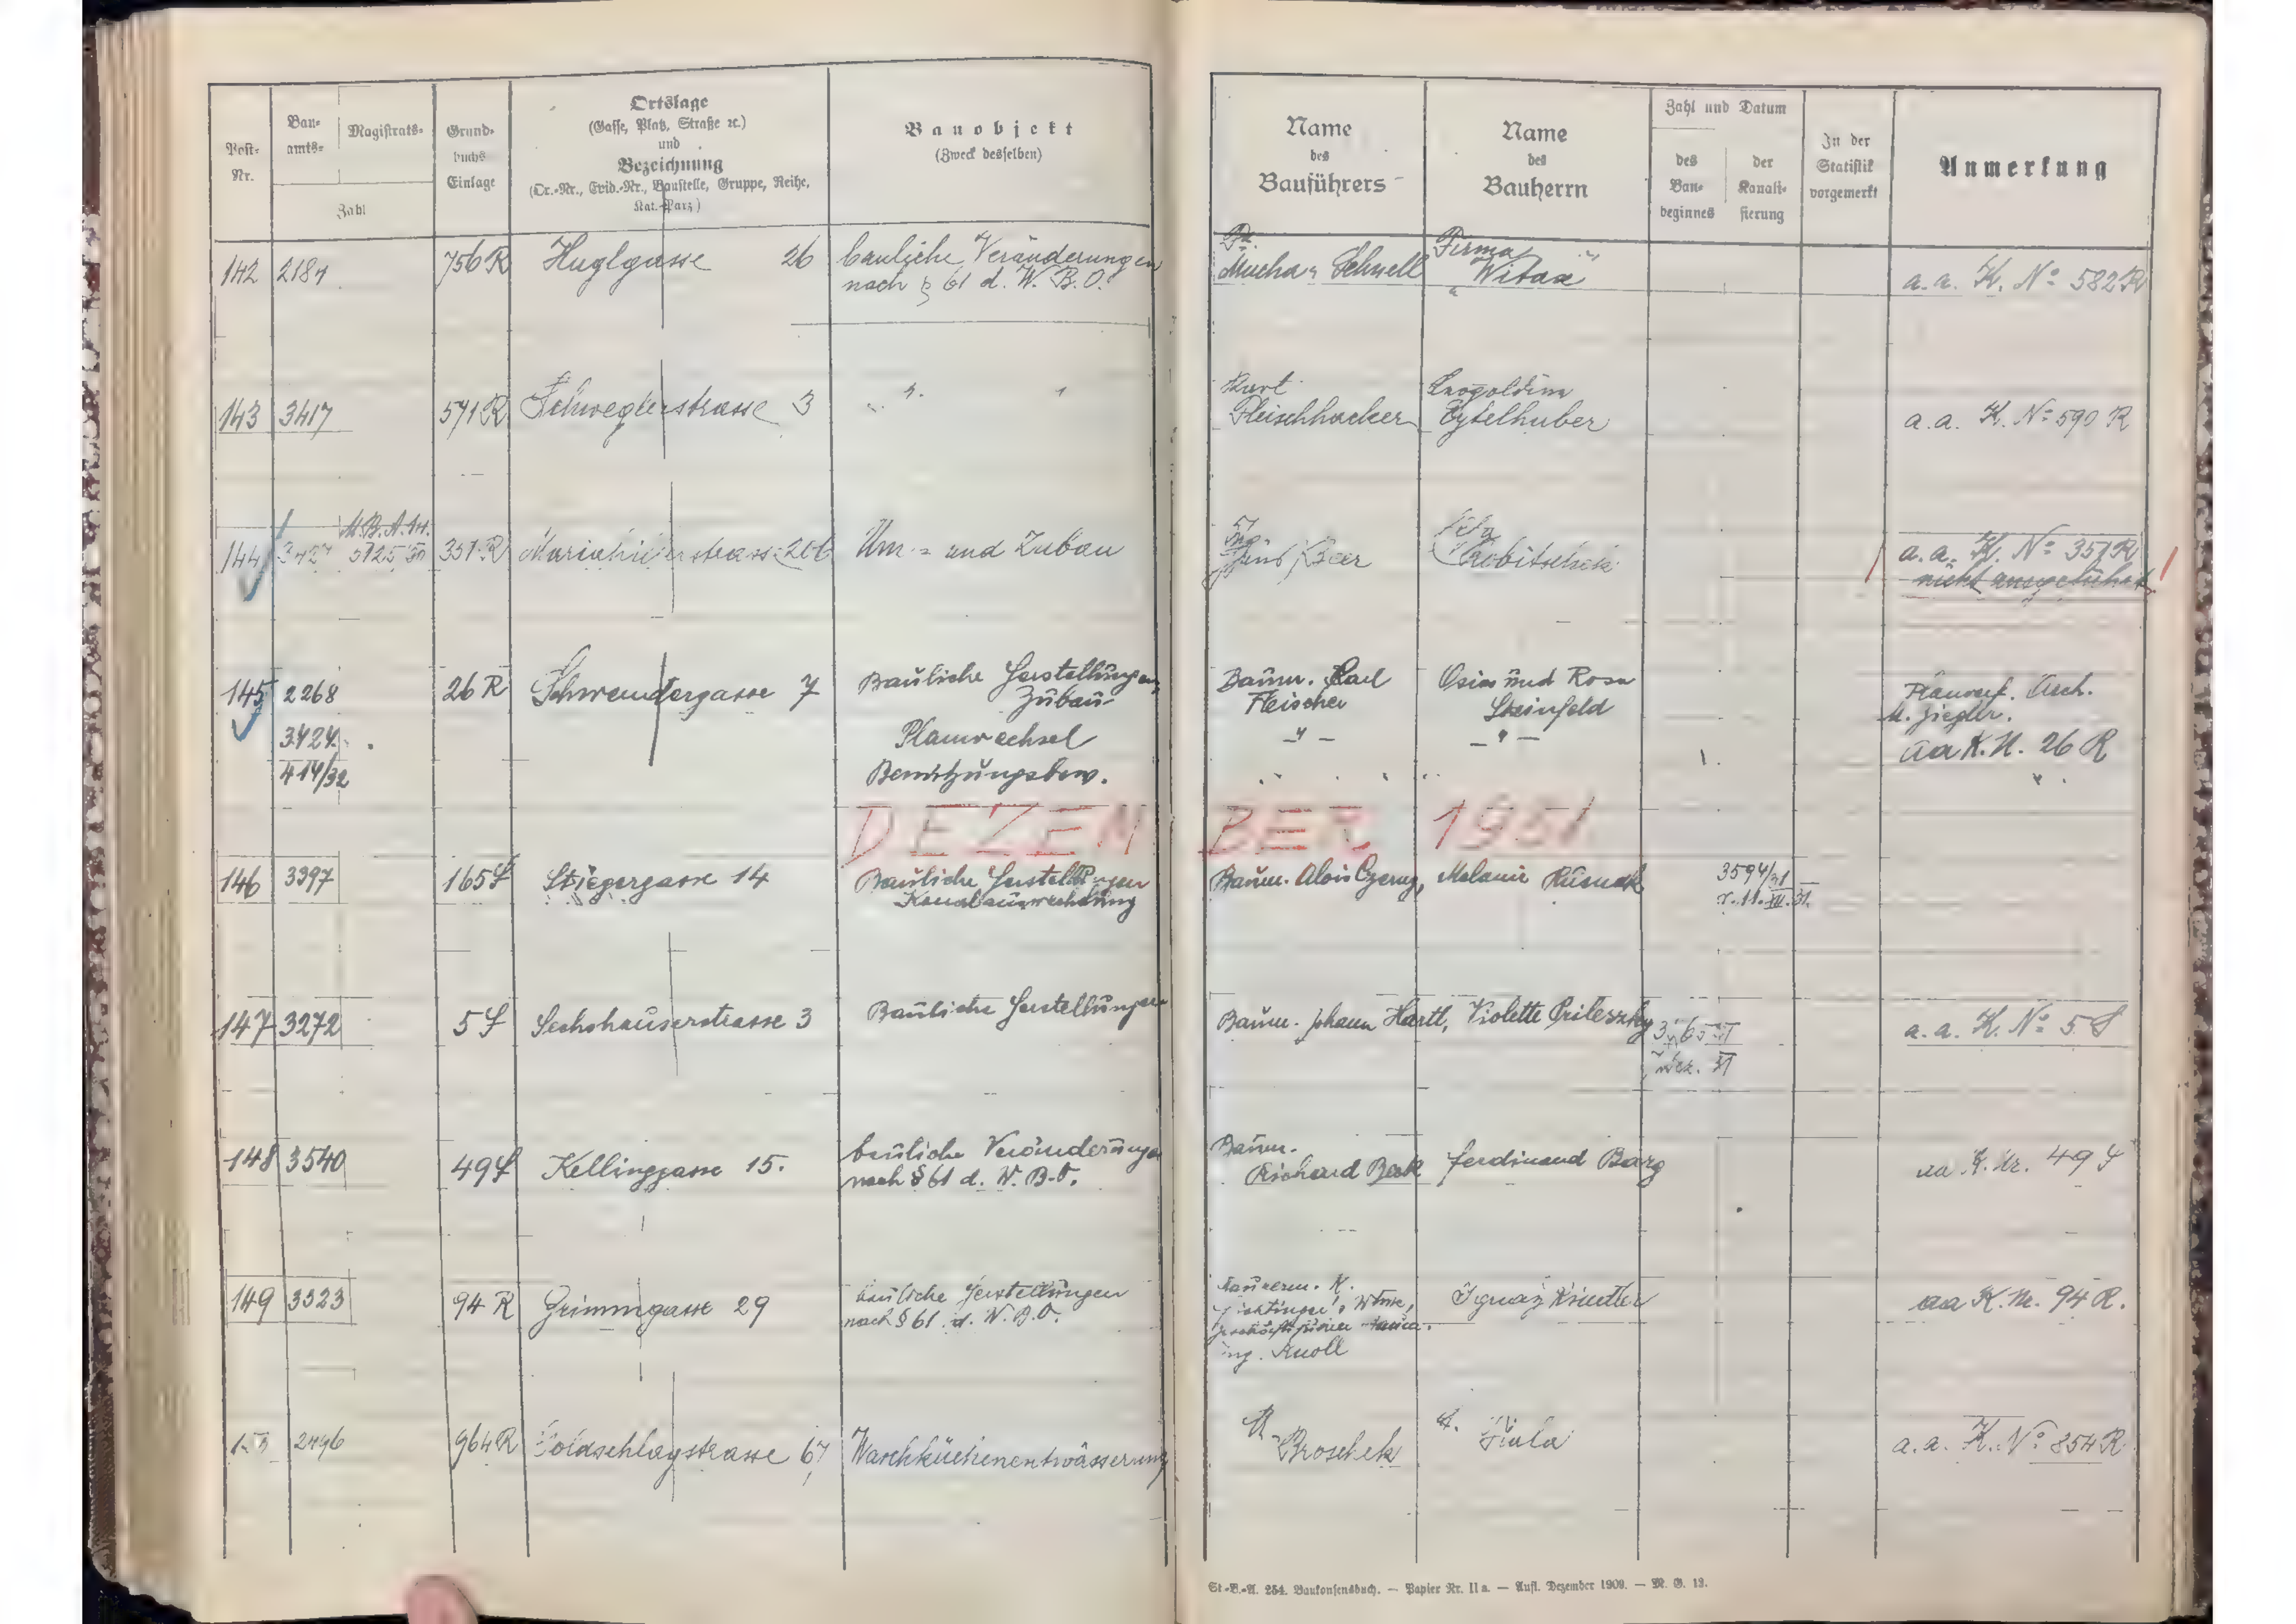 Post-
Nr.
Bau-
amts-
Magistrats-
Zahl
Grund-
buchs
Einlage
Ortslage
(Gasse, Platz, Straße ec.)
und
Bezeichnung
(Or.-Nr., Evid.-Nr., Baustelle, Gruppe, Reihe,
Kat.-Parz)
Bauobjekt
(Zweck desselben)
Name
des
Bauführers
Name
des
Bauherrn
Zahl und Datum
des
Bau-
beginnes
der
Kanali-
sierung
In der
Statistik
vorgemerkt
Anmerkung
142 2187 756 R Huglgasse 26 bauliche Veränderungen
nach § 61 d. W. B. O.
Mucha u Schnell
Firma
"Witax"
a. a. K. Nº 582 R
143 3417 571 R Schweglerstrasse 3 " "
Kurt
Fleischhacker
Leopoldine
Eytelhuber
a. a. K. Nº 590 R
M.B.A. 14.
144 3427 351 R Mariahilferstrasse 206 Um- und Zubau
Beer
a. a. K. Nº 351 R
nicht ausgeführt
145 2268 26 R Schwendergasse 7 Bauliche Herstellungen,
Zubau
3424 Planwechsel
414/32 Benützungsbew.
Baum. Karl
Fleischer
- " -
Osias und Rosa
Steinfeld
- " -
Planverf. Arch.
M. Ziegler.
aa K. N. 26 R
"
DEZEMBER 1931
146 3397 165 S Stiegergasse 14 Bauliche Herstellungen
Kanalauswechslung
Baum. Alois Czerny, Melanie Rusnak 3594/31
v. 11. XII. 31.
147 3272 5 S Sechshauserstrasse 3 Bauliche Herstellungen
Baum. Johann Hartl, Violette Prileszky
Dez. 31
a. a. K. Nº 5 S
148 3540 49 S Kellinggasse 15. bauliche Veränderungen
nach § 61 d. W. B. O.
Baum.
Richard Beck Ferdinand Barg
aa K. Nr. 49 S
149 3523 94 R Grimmgasse 29 bauliche Herstellungen
nach § 61 d. W. B. O.
Maurerm. K.
Witwe,
ing. Knoll
Ignaz
aa K. Nr. 94 R.
2496 964 R Goldschlagstrasse 67 Waschküchenentwässerung
R.
Broschek
Fiala
a. a. K. Nº 854 R
St.-B.-A. 254. Baukonsensbuch. — Papier Nr. II a. — Aufl. Dezember 1909. — M. G. 13.